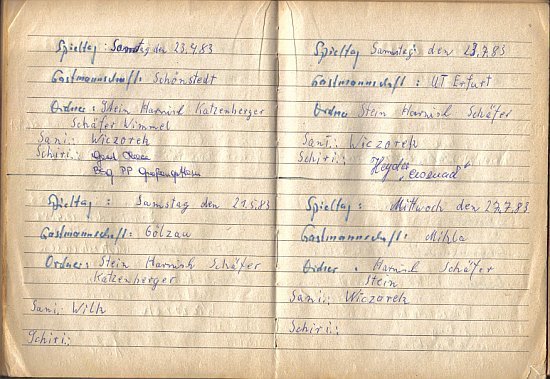 Spieltag: Samstag den 23.4.83
Gastmannschaft: Schönstedt
Ordner: Stein Harnisch Katzenberger
Schäfer Wimmel
Sani: Wiczorek
Schiri:
BSG PP
Spieltag: Samstag den 21.5.83
Gastmannschaft: Gölzau
Ordner: Stein Harnish Schäfer
Katzenberger
Sani: Wilk
Schiri:
Spieltag Samstag den 23.7.83
Gastmannschaft: UT Erfurt
Ordner Stein Harnisch Schäfer
Sani: Wiczorek
Schiri:
Spieltag: Mittwoch den 27.7.83
Gastmannschaft: Mihla
Ordner: Harnish Schäfer
Stein
Sani: Wiczorek
Schiri: